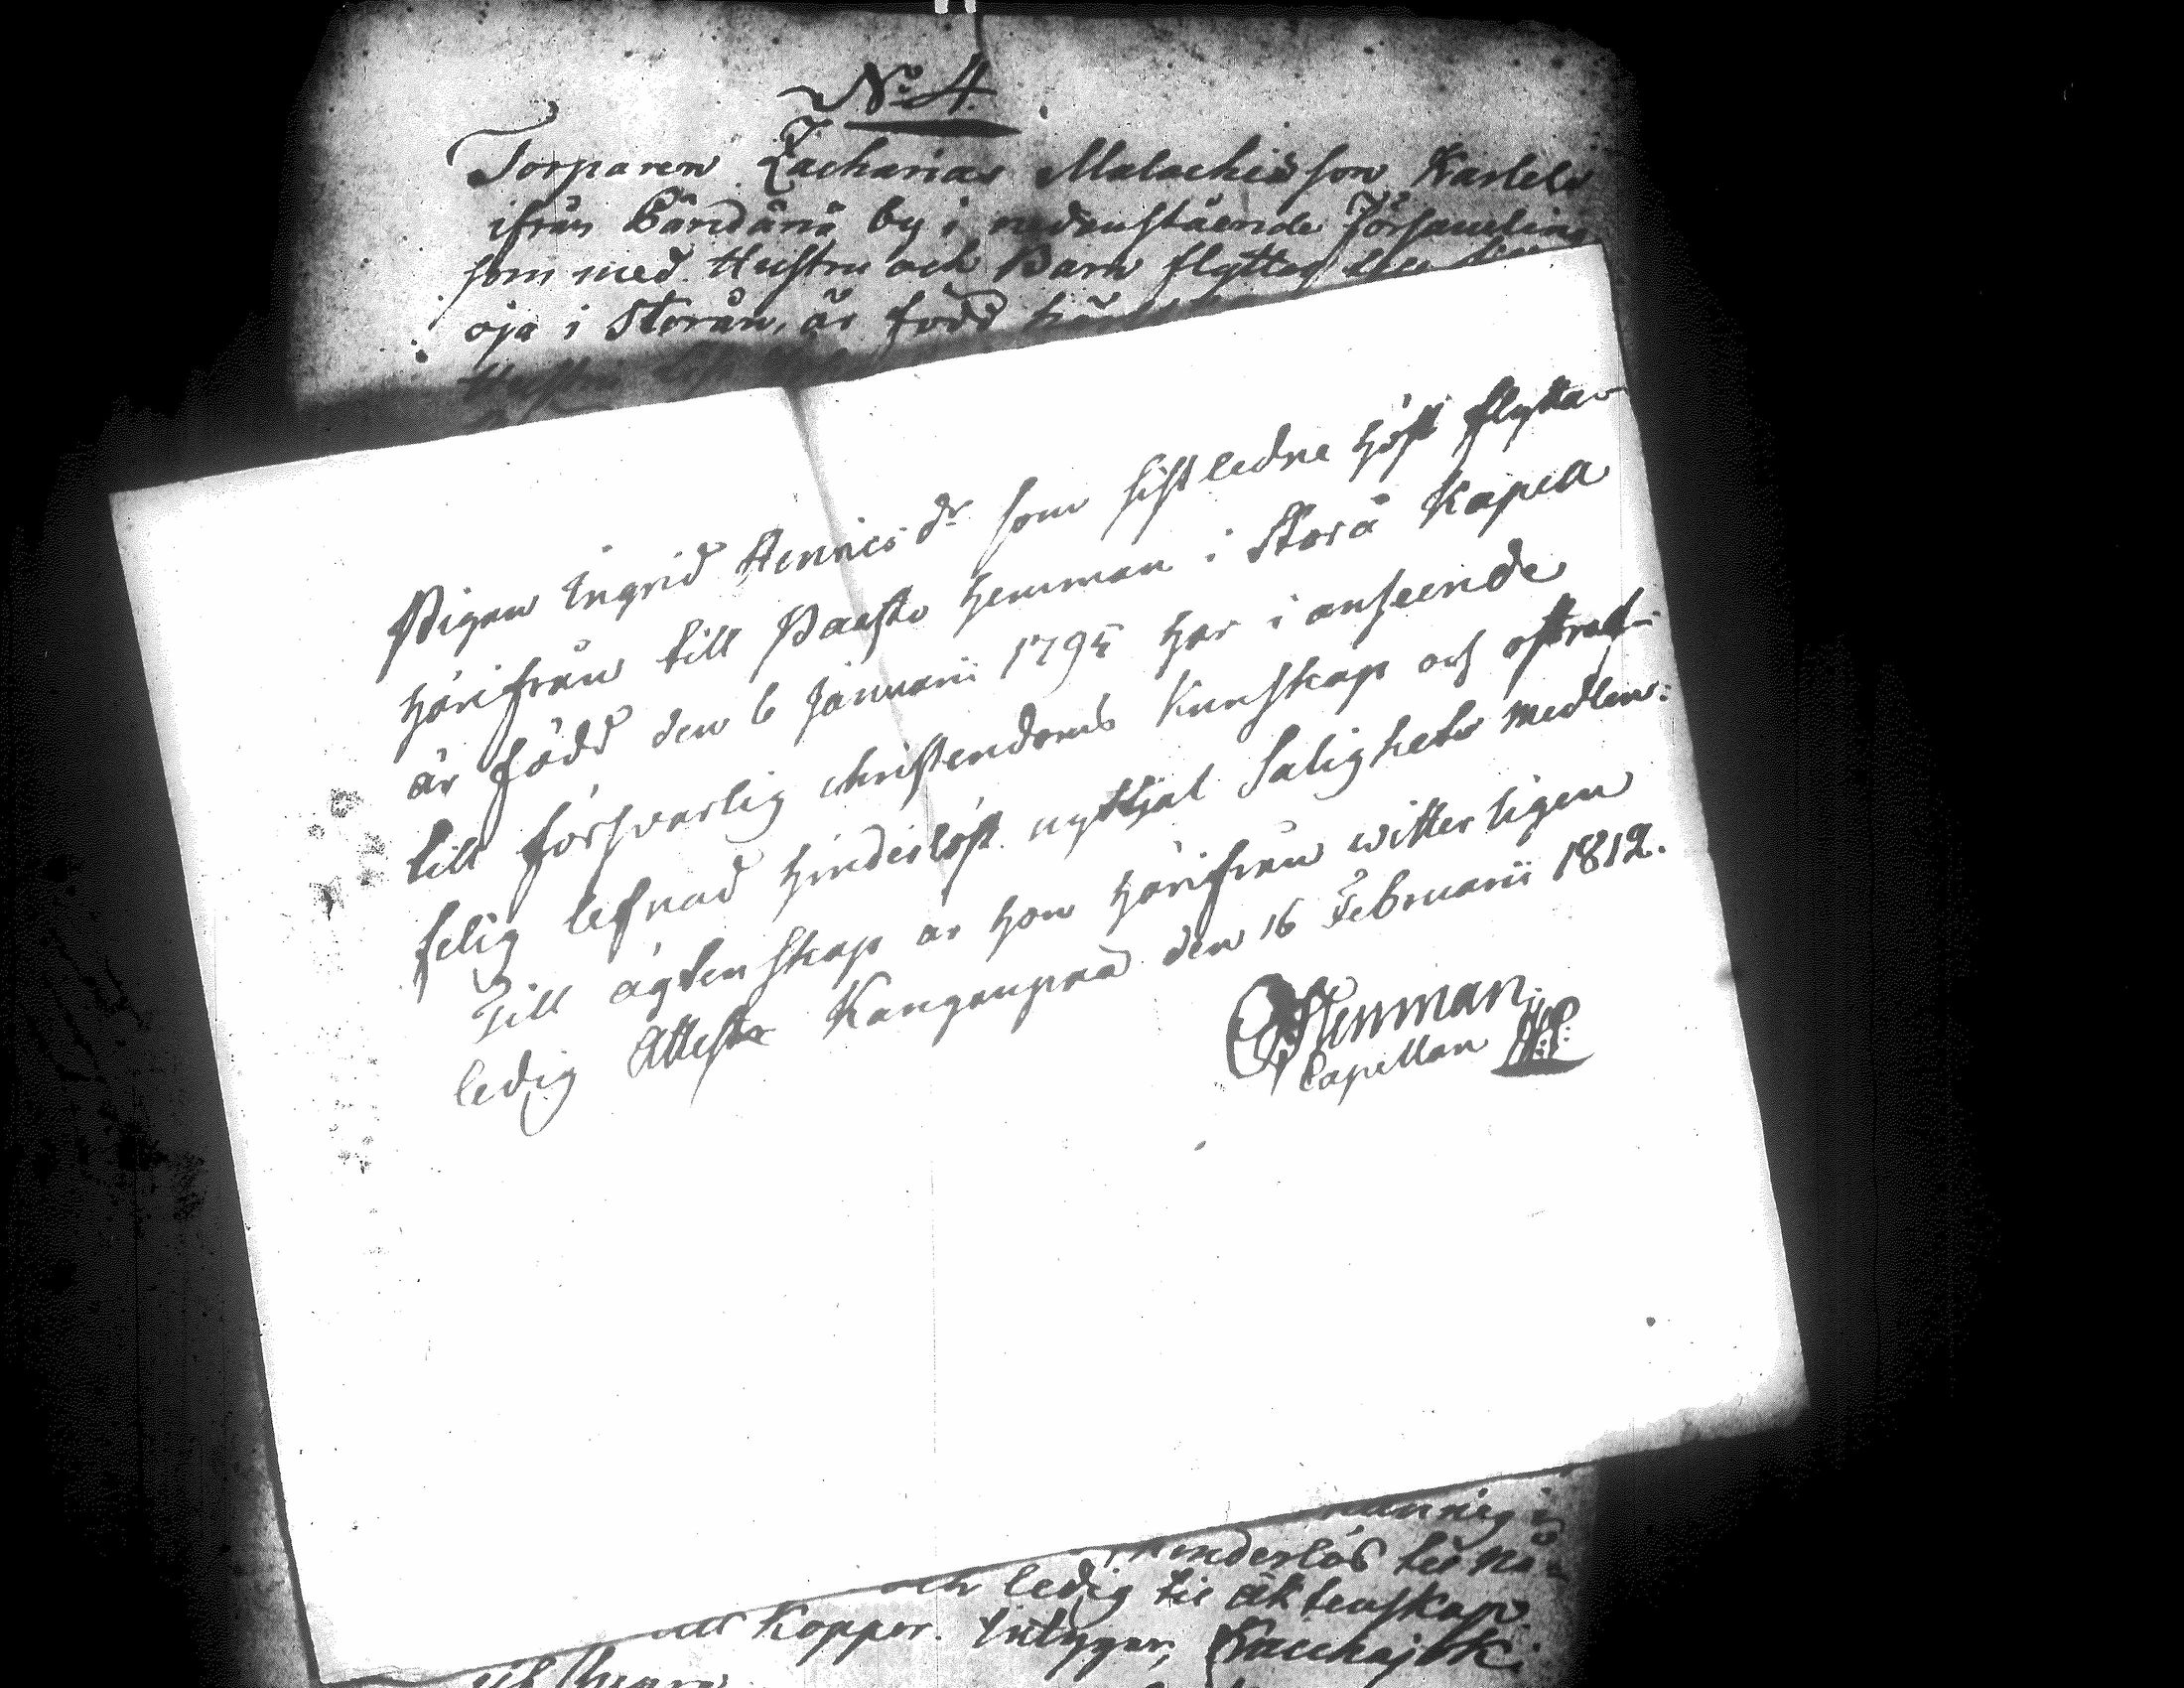 No 4.
Torparen Zacharias Malachisson Karlels
ifrån by i nedanstående Församling
som med Hustru och Barn flyttar
oja i Storån, är född
Hustru
Pigan Ingrid Henricsdr som sistledne höst flyttar
härifrån till Paasto hemman i Storå Kapell
är född den 6 Januarii 1795 har i anseende
till försvarlig christendoms kunskap och ostraf-
felig lefnad hinderlöst nyttjat Salighets medlen:
Till ägtenskap är hon härifrån witterligen
ledig Attesta Kanganpää den 16 Februarii 1812.
Stenman
Capellan
hinderlös til
och ledig til äktenskap
Koppor. Intygar, Kauhajoki